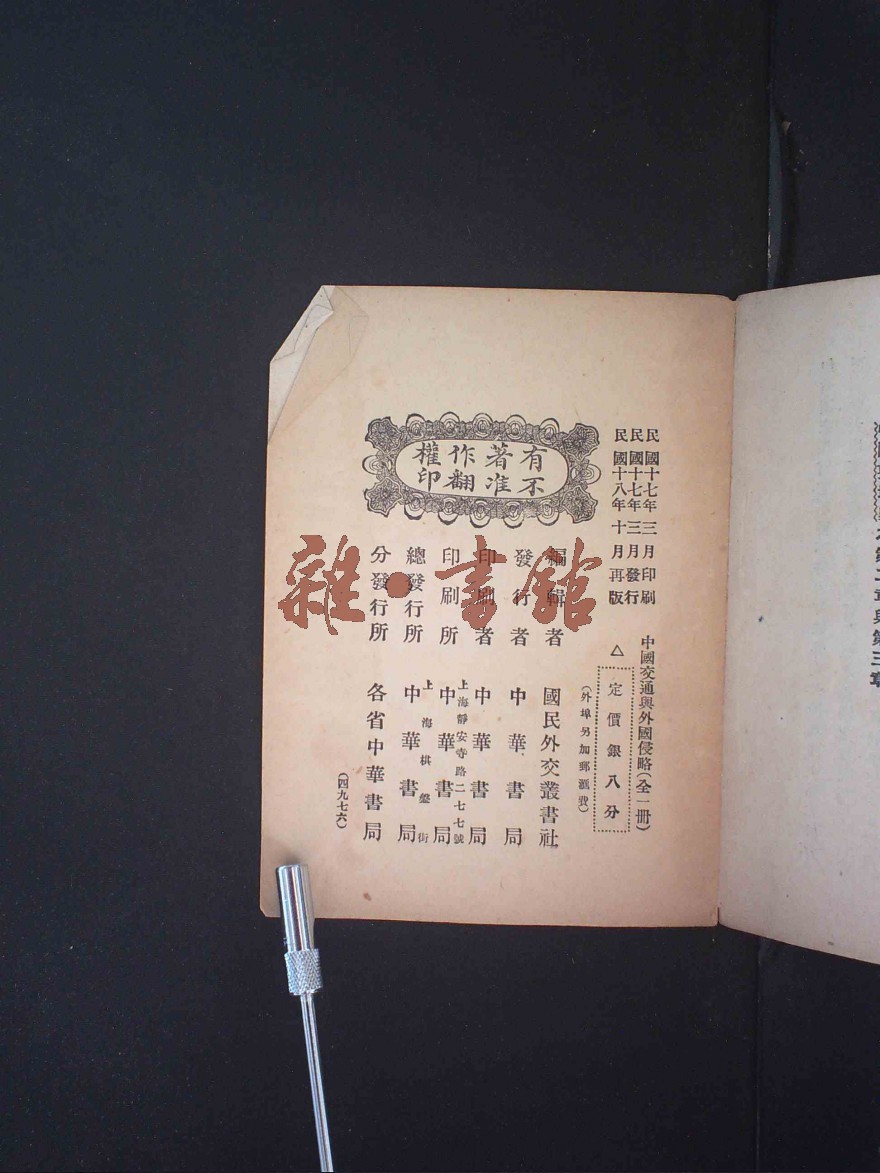 民國十七年三月印刷
民國十七年三月發行
民國十八年十月再版
有著作權
不准翻印
中國交通與外國侵略（全一冊）
△定價銀八分
（外埠另加郵滙費）
編輯者 國民外交叢書社
發行者 中華書局
印刷者 中華書局
印刷所 上海靜安寺路二七七號 中華書局
總發行所 上海棋盤街 中華書局
分發行所 各省中華書局
（四九七六）
雜·書館
第二章與第三章